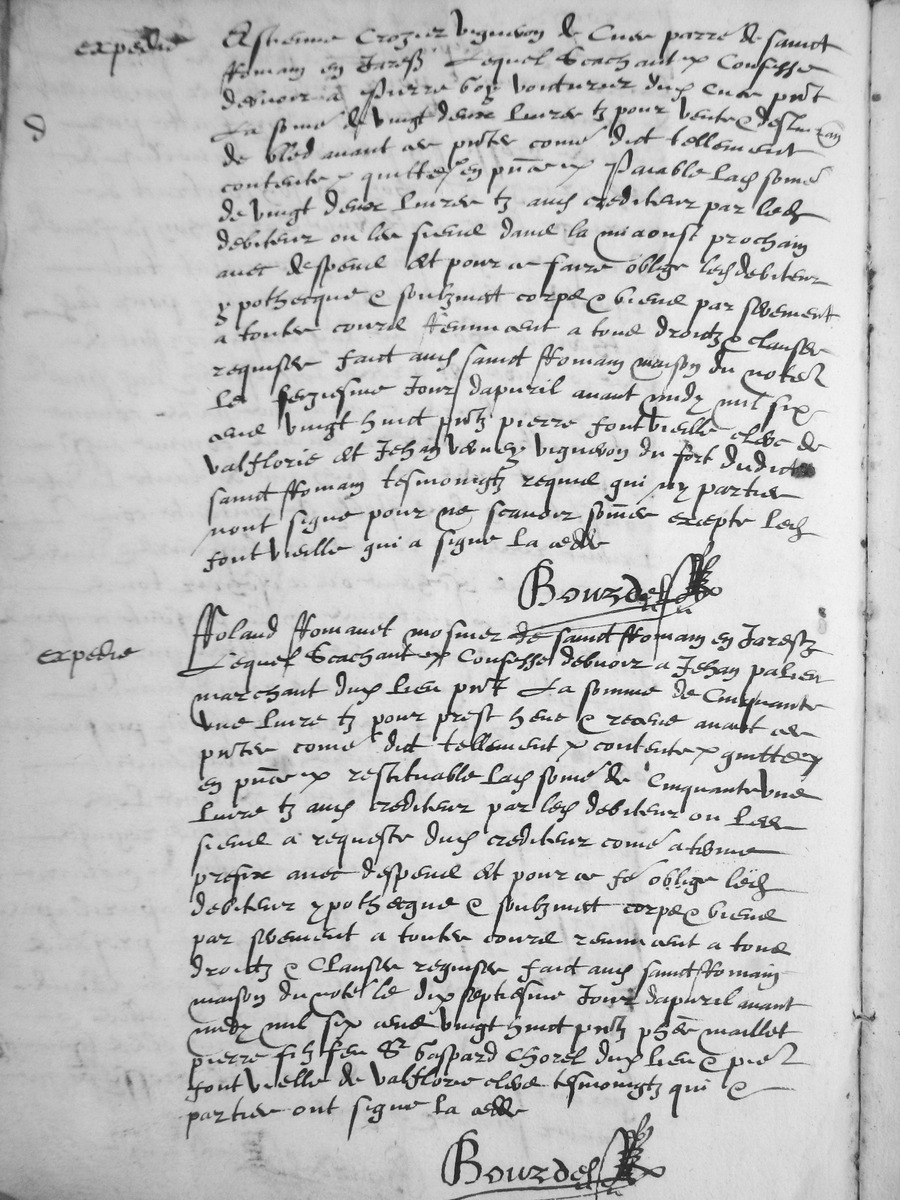 expedie
Estienne Crozier vigneron de Cuer parre de sainct
Romain en Jarestz Lequel Scachant &c Confesse
debvoir a Pierre voicturier dud Cuer pnt
La some de vingt deux livres tz pour vente &
de bled avant ces pntes come dict tellement
contente & quitte en pnce &c Paiable lad some
de vingt deux livres tz aud crediteur par led
debiteur ou les siens dans la miaoust prochain
avec despens Et pour ce faire oblige led debiteur
ypothecque & soubzmect corps & biens par serement
a toutes cours Renunceant a tous droictz & clauses
requises faict aud sainct Romain maison du notere
le jour dapvril avant midy mil six
cens vingt huict pntz pierre fontvieille clerc de
valflorie et Jehan verney vigneron du fort dudict
sainct Romain tesmoingtz requis qui ny parties
nont signe pour ne scavoir somes excepte led
fontvieille qui a signe la cedde
Bourdel
expedie
Roland Romanet mosnier de sainct Romain en Jarestz
Lequel Scachant &c Confesse debvoir a Jehan palien
marchant dud lieu pnt La somme de Cinquante
une livre tz pour prest heue & receue avant ces
pntes come dict tellement &c contente & quitte &
en pnce &c restituable lad some de Cinquante une
livre tz aud crediteur par led debiteur ou les
siens a requeste dud crediteur come a terme
prefix avec despens Et pour ce fe oblige led
debiteur ypothecque & soubzmect corps & biens
par serement a toutes cours renunceant a tous
droictz & Clauses requises faict aud sainct Romain
maison du note le dix septiesme Jour dapvril avant
midy mil six cens vingt huict pntz maillet
pierre filz feu Sr Gaspard Chorel dud lieu & pierre
fontvielle de valflorie clerc tesmoingtz qui &
parties ont signe la cedde
Bourdel